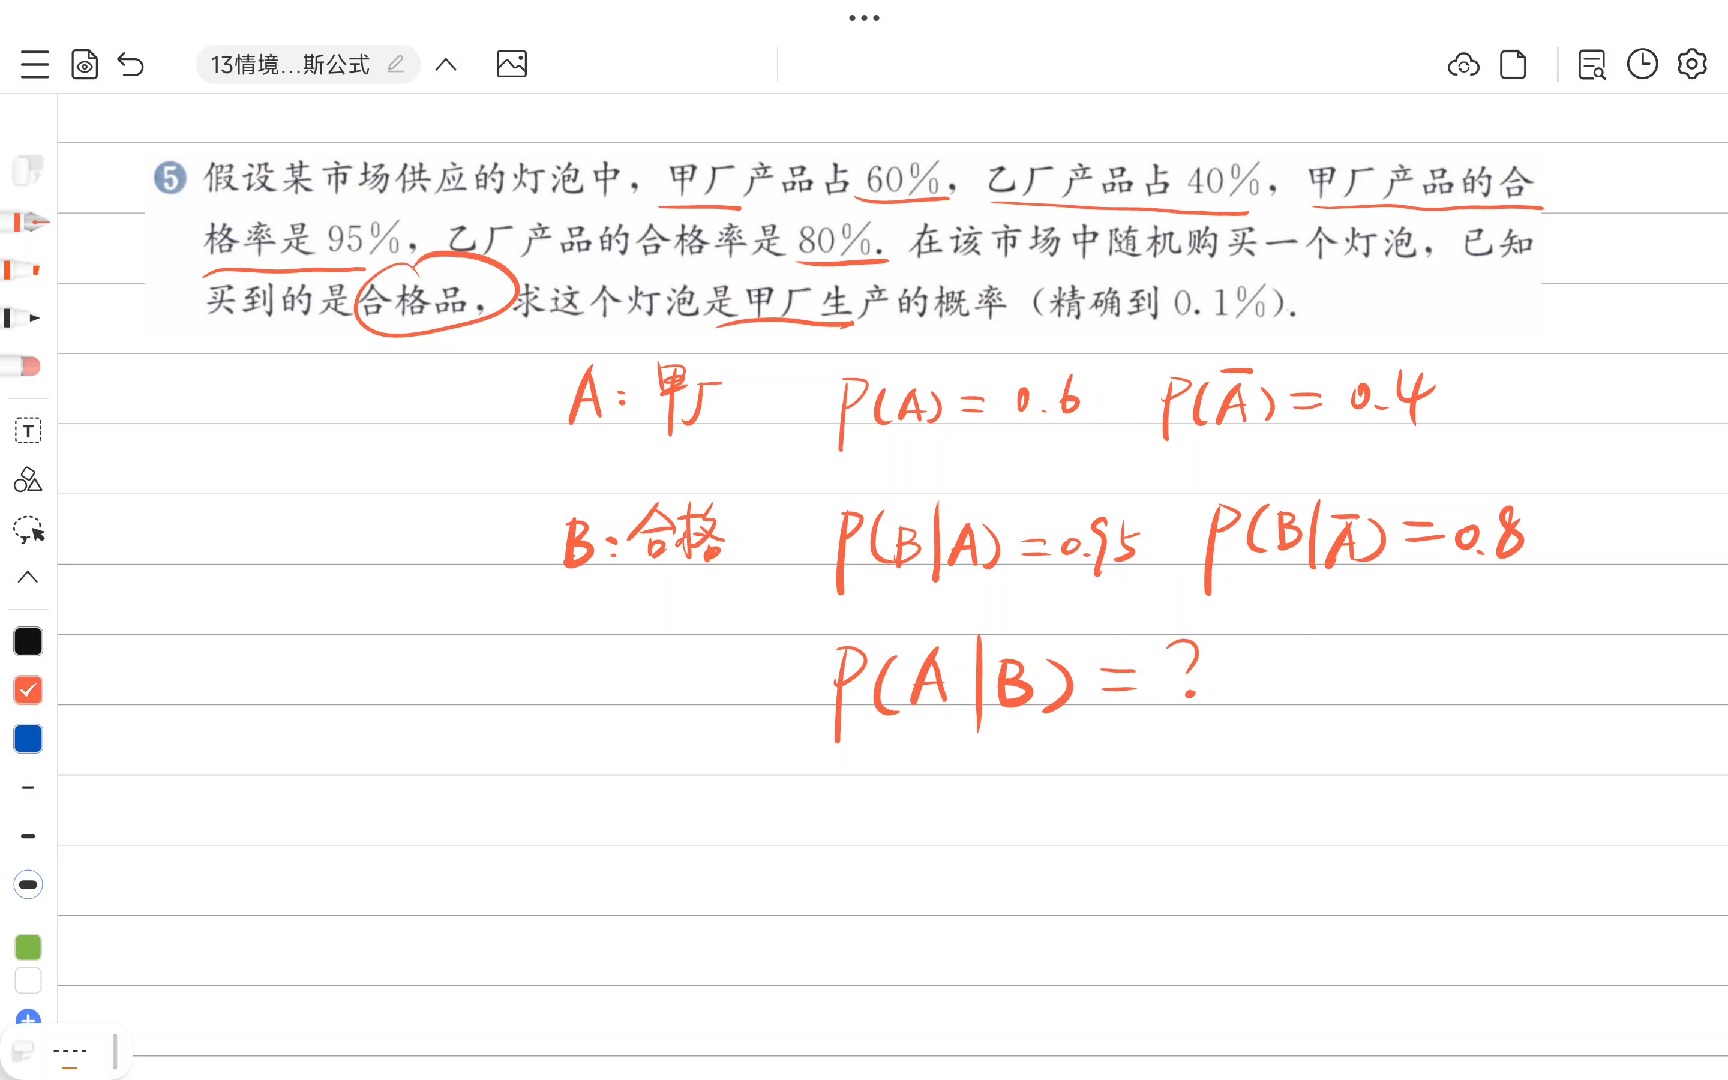 13情境...斯公式
5 假设某市场供应的灯泡中，甲厂产品占 60%，乙厂产品占 40%，甲厂产品的合
格率是 95%，乙厂产品的合格率是 80%. 在该市场中随机购买一个灯泡，已知
买到的是合格品，求这个灯泡是甲厂生产的概率（精确到 0.1%）.
A: 甲厂 P(A) = 0.6 P(A̅) = 0.4
B: 合格 P(B|A) = 0.95 P(B|A̅) = 0.8
P(A|B) = ?
T